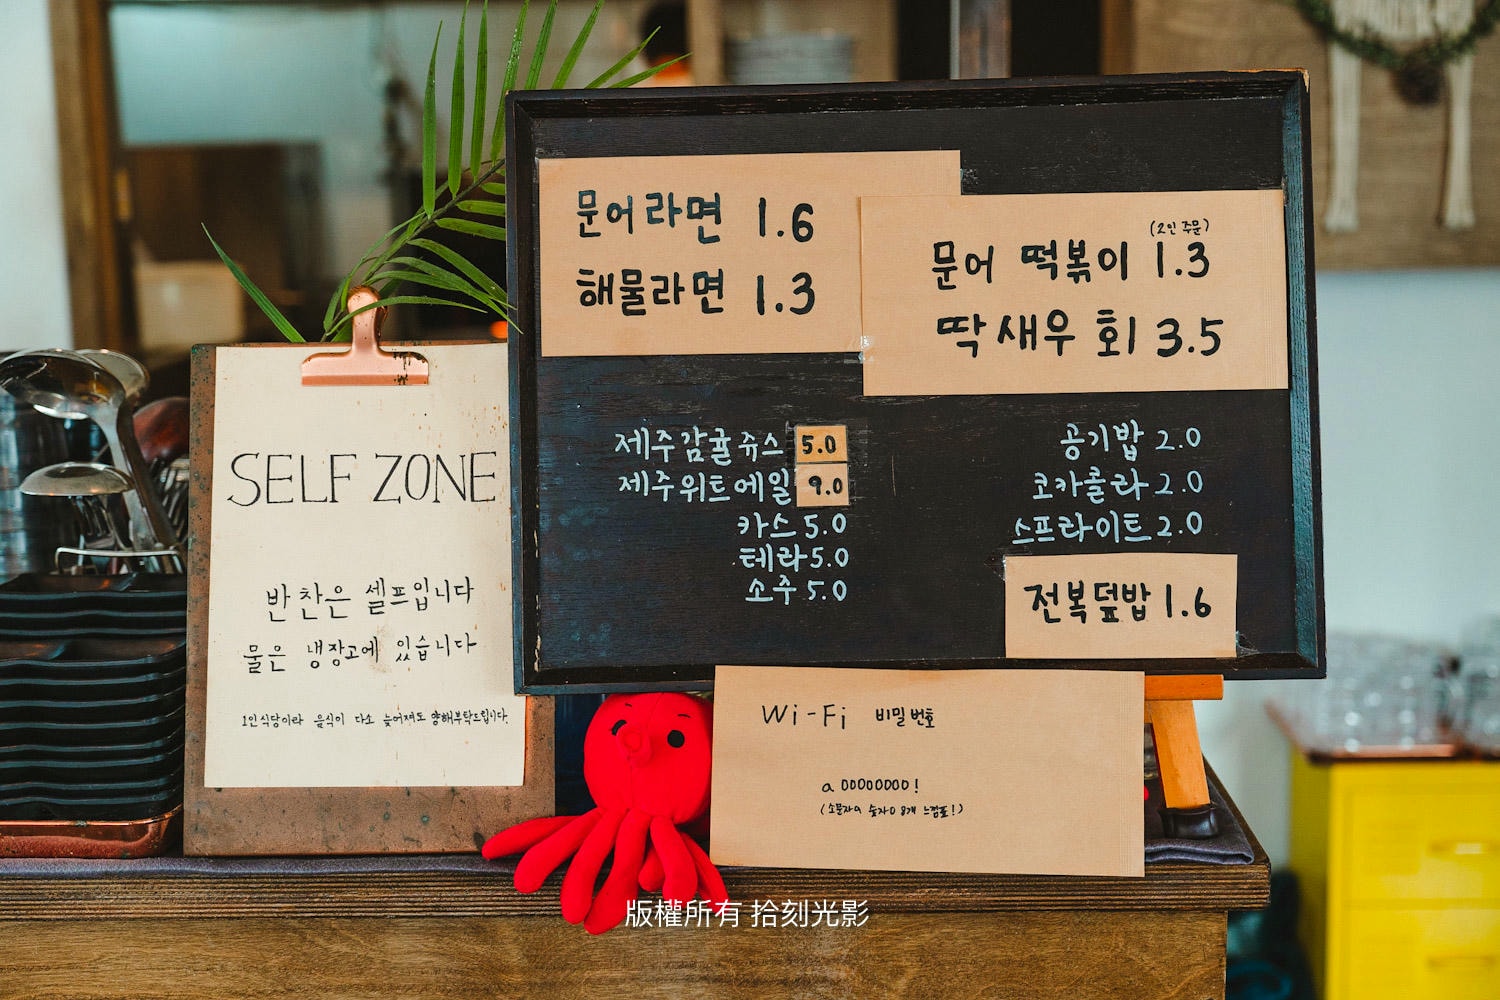 SELF ZONE
반찬은 셀프입니다
물은 냉장고에 있습니다
1인식당이라 음식이 다소 늦어져도 양해부탁드립니다.
문어라면 1.6
해물라면 1.3
(2인 주문)
문어 떡볶이 1.3
딱새우 회 3.5
제주감귤쥬스 5.0
제주위트에일 9.0
카스 5.0
테라 5.0
소주 5.0
공기밥 2.0
코카콜라 2.0
스프라이트 2.0
전복덮밥 1.6
Wi-Fi 비밀번호
a00000000!
(소문자a 숫자0 8개 느낌표!)
版權所有 拾刻光影